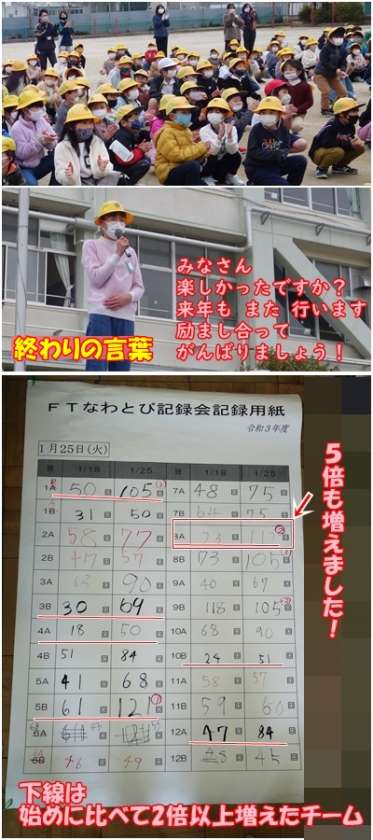 みなさん
楽しかったですか?
来年も また 行います
励まし合って
がんばりましょう!
終わりの言葉
FTなわとび記録会記録用紙
令和3年度
1月25日(火)
班 1/18 1/25 班 1/18 1/25
1A 50 105 7A 48 75
1B 31 50 7B 75
2A 58 77 8A
2B 57 8B 73 105
3A 90 9A 40 67
3B 30 69 9B 118 105
4A 18 50 10A 68 90
4B 51 84 10B 24 51
5A 41 68 11A 58 57
5B 61 121 11B 59 60
6A 12A 47 84
6B 49 12B 45
5倍も増えました!
下線は
始めに比べて2倍以上増えたチーム